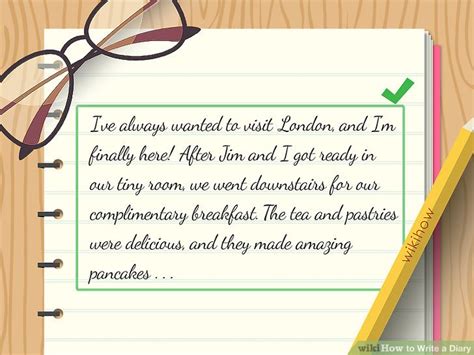 I've always wanted to visit London, and I'm
finally here! After Jim and I got ready in
our tiny room, we went downstairs for our
complimentary breakfast. The tea and pastries
were delicious, and they made amazing
pancakes . . .
wikihow
wikiHow to Write a Diary